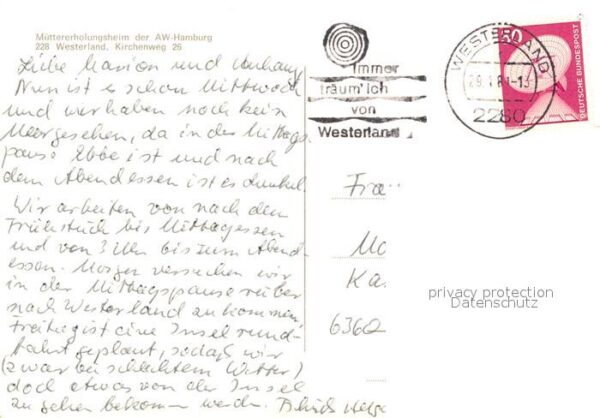 Müttererholungsheim der AW-Hamburg
228 Westerland, Kirchenweg 26
Liebe Marion und Anhang
Nun ist es schon Mittwoch
und wir haben noch kein
Meer gesehen, da in der Mittags
pause Ebbe ist und nach
dem Abendessen ist es dunkel.
Wir arbeiten von nach dem
Frühstück bis Mittagessen
und von 3 Uhr bis zum Abend-
essen. Morgen versuchen wir
in der Mittagspause rüber
nach Westerland zu kommen.
Freitag ist eine Insel rund-
fahrt geplant, sodaß wir
(zwar bei schlechtem Wetter)
doch etwas von der Insel
zu sehen bekommen werden.
Immer
träum' ich
von
Westerland
WESTERLAND
2280
50
DEUTSCHE BUNDESPOST
Fra
Mo
Ka
6360
privacy protection
Datenschutz